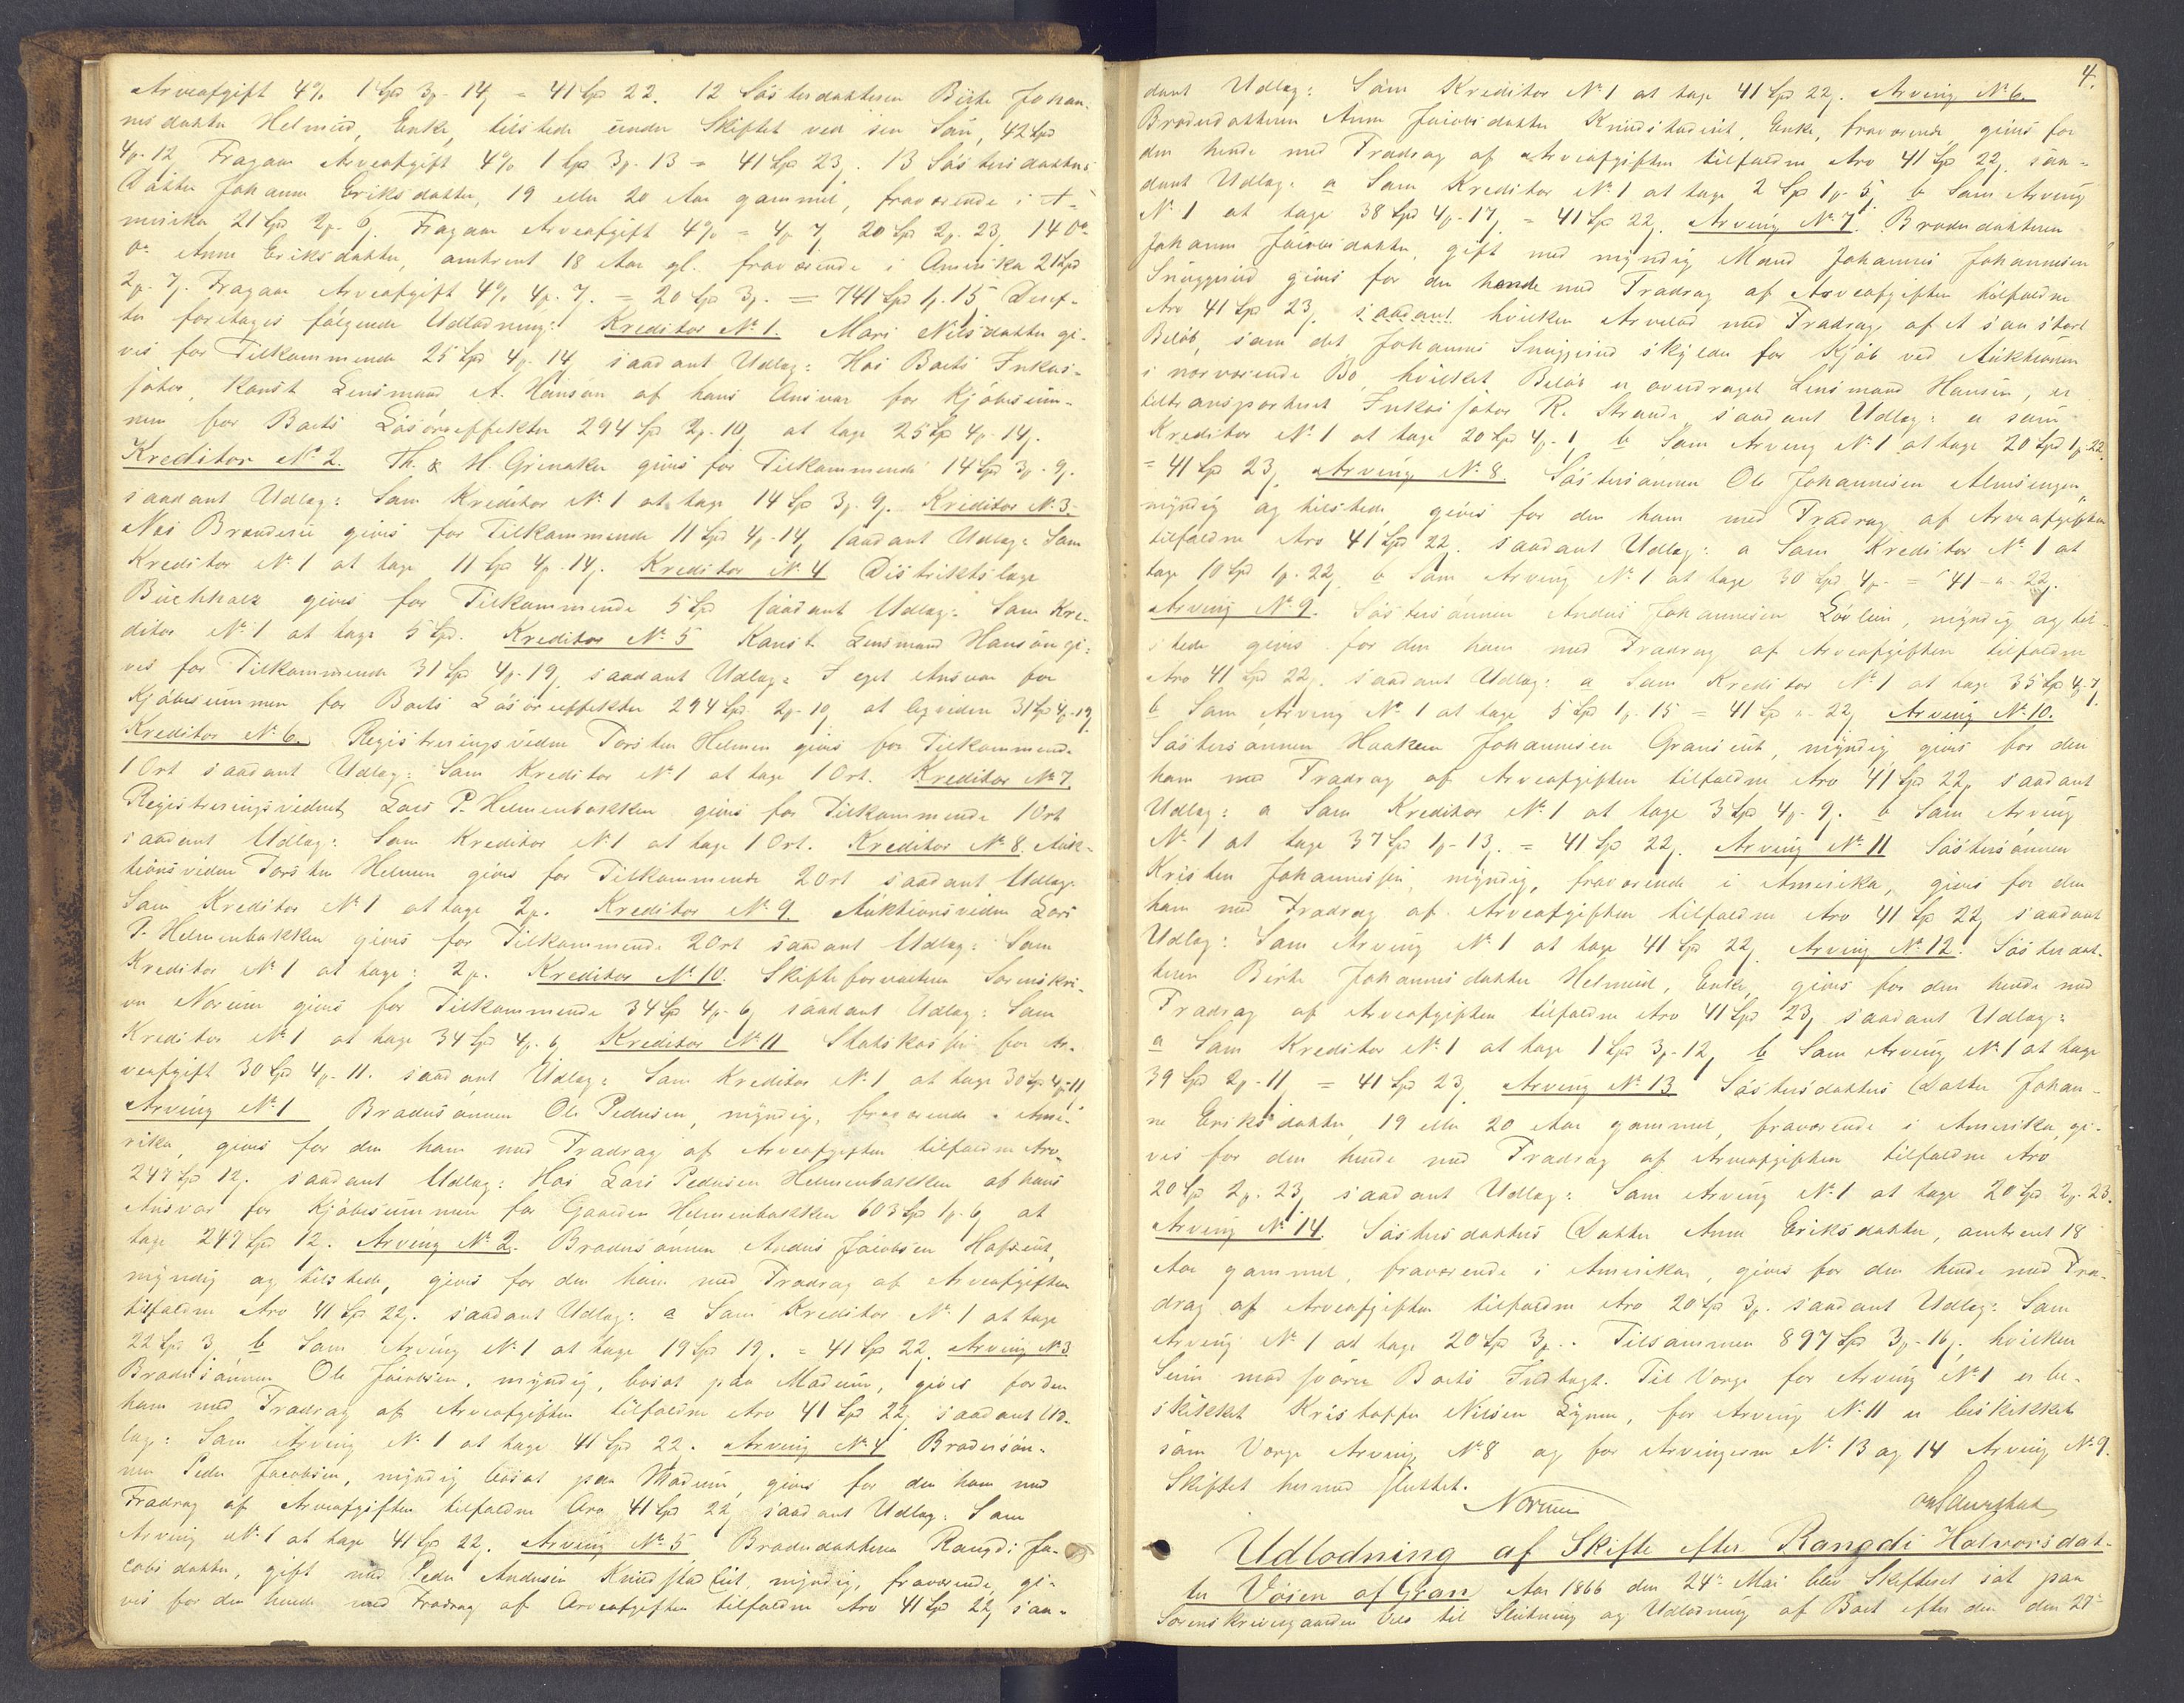 Arveafgift 4% 1 Spd 3 - 14 = 41 Sp 22. 12 Søsterdatteren Birte Johan-
nesdatter Helmeid, Enke, tilstede under Skiftet ved sin Søn, 42 Spd
4 - 12 Fragaar Arveafgift 4% 1 Sp 3 - 13 = 41 Sp 23. 13 Søsterdatters
Datter Johanne Eriksdatter, 19 eller 20 Aar gammel, fraværende i A-
merika 21 Spd 2 - 6. Fragaar Arveafgift 4% = 4 7 20 Spd 2 23. 14 Do
Do Anne Eriksdatter, omtrent 18 Aar gl. fraværende i Amerika 21 Spd
2 - 7. Fragaar Arveafgift 4% 4 - 7. = 20 Sp 3. = 741 Spd 1 - 15 Deref-
ter foretages følgende Udlodning: Kreditor No 1. Mari Nilsdatter gi-
ves for Tilkommende 25 Spd 4 - 14 saadant Udlæg: Hos Boets Inkas-
sator, Konst Lensmand A. Hansen af hans Ansvar for Kjøbesum-
men for Boets Løsøreeffekter 294 Spd 2 - 10 at tage 25 Sp 4 - 14.
Kreditor No 2. Th. & H. Grinaker gives for Tilkommende 14 Spd 3 - 9.
saadant Udlæg: Som Kreditor No 1 at tage 14 Sp 3 - 9. Kreditor No 3.
Næs Brænderi gives for Tilkommende 11 Spd 4 - 14 saadant Udlæg: Som
Kreditor No 1 at tage 11 Sp 4 - 14. Kreditor No 4 Distriktslæge
Buchholz gives for Tilkommende 5 Spd saadant Udlæg: Som Kre-
ditor No 1 at tage 5 Spd. Kreditor No 5 Konst Lensmand Hansen gi-
ves for Tilkommende 31 Sp 4 - 19 saadant Udlæg: I eget Ansvar for
Kjøbesummen for Boets Løsøreeffekter 294 Spd 2 - 10 at 31 Sp 4 - 19
Kreditor No 6. Registreringsvidne Torsten Helmen gives for Tilkommende
1 Ort saadant Udlæg: Som Kreditor No 1 at tage 1 Ort. Kreditor No 7.
Registreringsvidnet Lars P. Helmenbakken gives for Tilkommende 1 Ort
saadant Udlæg: Som Kreditor No 1 at tage 1 Ort. Kreditor No 8. Auk-
tionsvidne Torsten Helmen gives for Tilkommende 2 Ort saadant Udlæg:
Som Kreditor No 1 at tage 2. Kreditor No 9. Auktionsvidne Lars
P. Helmenbakken gives for Tilkommende 2 Ort saadant Udlæg: Som
Kreditor No 1 at tage: 2. Kreditor No 10. Skifteforvalteren Sorenskri-
ver Norum gives for Tilkommende 34 Sp 4 - 6 saadant Udlæg: Som
Kreditor No 1 at tage 34 Spd 4 - 6 Kreditor No 11 Statskassen for Ar-
veafgift 30 Spd 4 - 11. saadant Udlæg: Som Kreditor No 1 at tage 30 Sp 4 - 11
Arving No 1 Brodersønnen Ole Pedersen, myndig, fraværende i Ame-
rika, gives for den ham med Fradrag af Arveafgiften tilfaldne Arv
247 Sp 12. saadant Udlæg: Hos Lars Pedersen Helmenbakken af hans
Ansvar for Kjøbesummen for Gaarden Helmenbakken 603 Sp 1 - 6 at
tage 247 Spd 12. Arving No 2. Brodersønnen Anders Jacobsen,
myndig og tilstede, gives for den ham med Fradrag af Arveafgiften
tilfaldne Arv 41 Sp 22. saadant Udlæg: a Som Kreditor No 1 at tage
22 Spd 3 b Som Arving No 1 at tage 19 Spd 19. = 41 Sp 22. Arving No 3
Brodersønnen Ole Jacobsen, myndig, bosat paa Modum, gives for den
ham med Fradrag af Arveafgiften tilfaldne Arv 41 Spd 22 saadant Ud-
læg: Som Arving No 1 at tage 41 Spd 22. Arving No 4 Brodersøn-
nen Peder Jacobsen, myndig bosat paa Modum, gives for den ham med
Fradrag af Arveafgiften tilfaldne Arv 41 Spd 22 saadant Udlæg: Som
Arving No 1 at tage 41 Sp 22. Arving No 5 Broderdatteren Rangdi Ja-
cobsdatter, gift med Peder Andersen, myndig, fraværende, gi-
ves for den hende med Fradrag af Arveafgiften tilfaldne Arv 41 Sp 22 saa-
4.
dant Udlæg: Som Kreditor No 1 at tage 41 Spd 22. Arving No 6.
Broderdatteren Anne Jacobsdatter, Enke, fraværende, gives for
den hende med Fradrag af Arveafgiften tilfaldne Arv 41 Sp 22 saa-
dant Udlæg: a Som Kreditor No 1 at tage 2 Sp 1 - 5 b Som Arving
No 1 at tage 38 Spd 4 - 17 = 41 Sp 22. Arving No 7. Broderdatteren
Johanne Jacobsdatter, gift med myndig Mand Johannes Johannesen
gives for den hende med Fradrag af Arveafgiften tilfaldne
Arv 41 Sp 23 saadant hvilken Arvelod med Fradrag af et saa stort
Beløb, som det Johannes skylder for Kjøb ved Auktionen
i nærværende Bo, hvilket Beløb er overdraget Lensmand Hansen, er
tiltransporteret Inkassator R. Strande saadant Udlæg: a som
Kreditor No 1 at tage 20 Spd 4 - 1 b Som Arving No 1 at tage 20 Spd 1 - 22.
= 41 Sp 23. Arving No 8. Søstersønnen Ole Johannesen Almsengen
myndig og tilstede, gives for den ham med Fradrag af Arveafgiften
tilfaldne Arv 41 Sp 22. saadant Udlæg: a Som Kreditor No 1 at
tage 10 Spd 1 - 22 b Som Arving No 1 at tage 30 Spd 4 - = 41 - " - 22.
Arving No 9. Søstersønnen Anders Johannesen, myndig og til-
stede gives for den ham med Fradrag af Arveafgiften tilfaldne
Arv 41 Sp 22. saadant Udlæg: a Som Kreditor No 1 at tage 35 Sp 4 - 7
b Som Arving No 1 at tage 5 Sp 1 - 15 = 41 Sp " - 22 Arving No 10.
Søstersønnen Haaken Johannesen, myndig gives for den
ham med Fradrag af Arveafgiften tilfaldne Arv 41 Spd 22 saadant
Udlæg: a Som Kreditor No 1 at tage 3 Sp 4 - 9. b Som Arving
No 1 at tage 37 Sp 1 - 13. = 41 Sp 22. Arving No 11 Søstersønnen
Kristen Johannessen, myndig, fraværende i Amerika, gives for den
ham med Fradrag af Arveafgiften tilfaldne Arv 41 Sp 22 saadant
Udlæg: Som Arving No 1 at tage 41 Sp 22. Arving No 12. Søsterdat-
teren Birte Johannesdatter Helmeid, Enke, gives for den hende med
Fradrag af Arveafgiften tilfaldne Arv 41 Spd 23 saadant Udlæg:
a Som Kreditor No 1 at tage 1 Spd 3 - 12, b Som Arving No 1 at tage
39 Spd 2 - 11 = 41 Sp 23. Arving No 13 Søsterdatters Datter Johan-
ne Eriksdatter 19 eller 20 Aar gammel, fraværende i Amerika, gi-
ves for den hende med Fradrag af Arveafgiften tilfaldne Arv
20 Spd 2 - 23 saadant Udlæg: Som Arving No 1 at tage 20 Spd 2 - 23.
Arving No 14. Søsterdatters Datter Anne Eriksdatter, omtrent 18
Aar gammel, fraværende i Amerika, gives for den hende med Fra-
drag af Arveafgiften tilfaldne Arv 20 Sp 3. saadant Udlæg: Som
Arving No 1 at tage 20 Sp 3. Tilsammen 897 Spd 3 - 16. hvilken
Sum modsvarer Boets Indtægt. Til Værge for Arving No 1 er be-
skikket Kristoffer Nilsen, for Arving No 11 er beskikket
som Værge Arving No 8 og for Arvingerne No 13 og 14 Arving No 9.
Skiftet hermed sluttet.
Norum
Udlodning af Skifte efter Rangdi Halvorsdat-
ter Vøien af Gran Aar 1866 den 24de Mai blev Skifteret sat paa
Sorenskrivergaarden til Slutning og Udlodning af Boet efter den den 27de